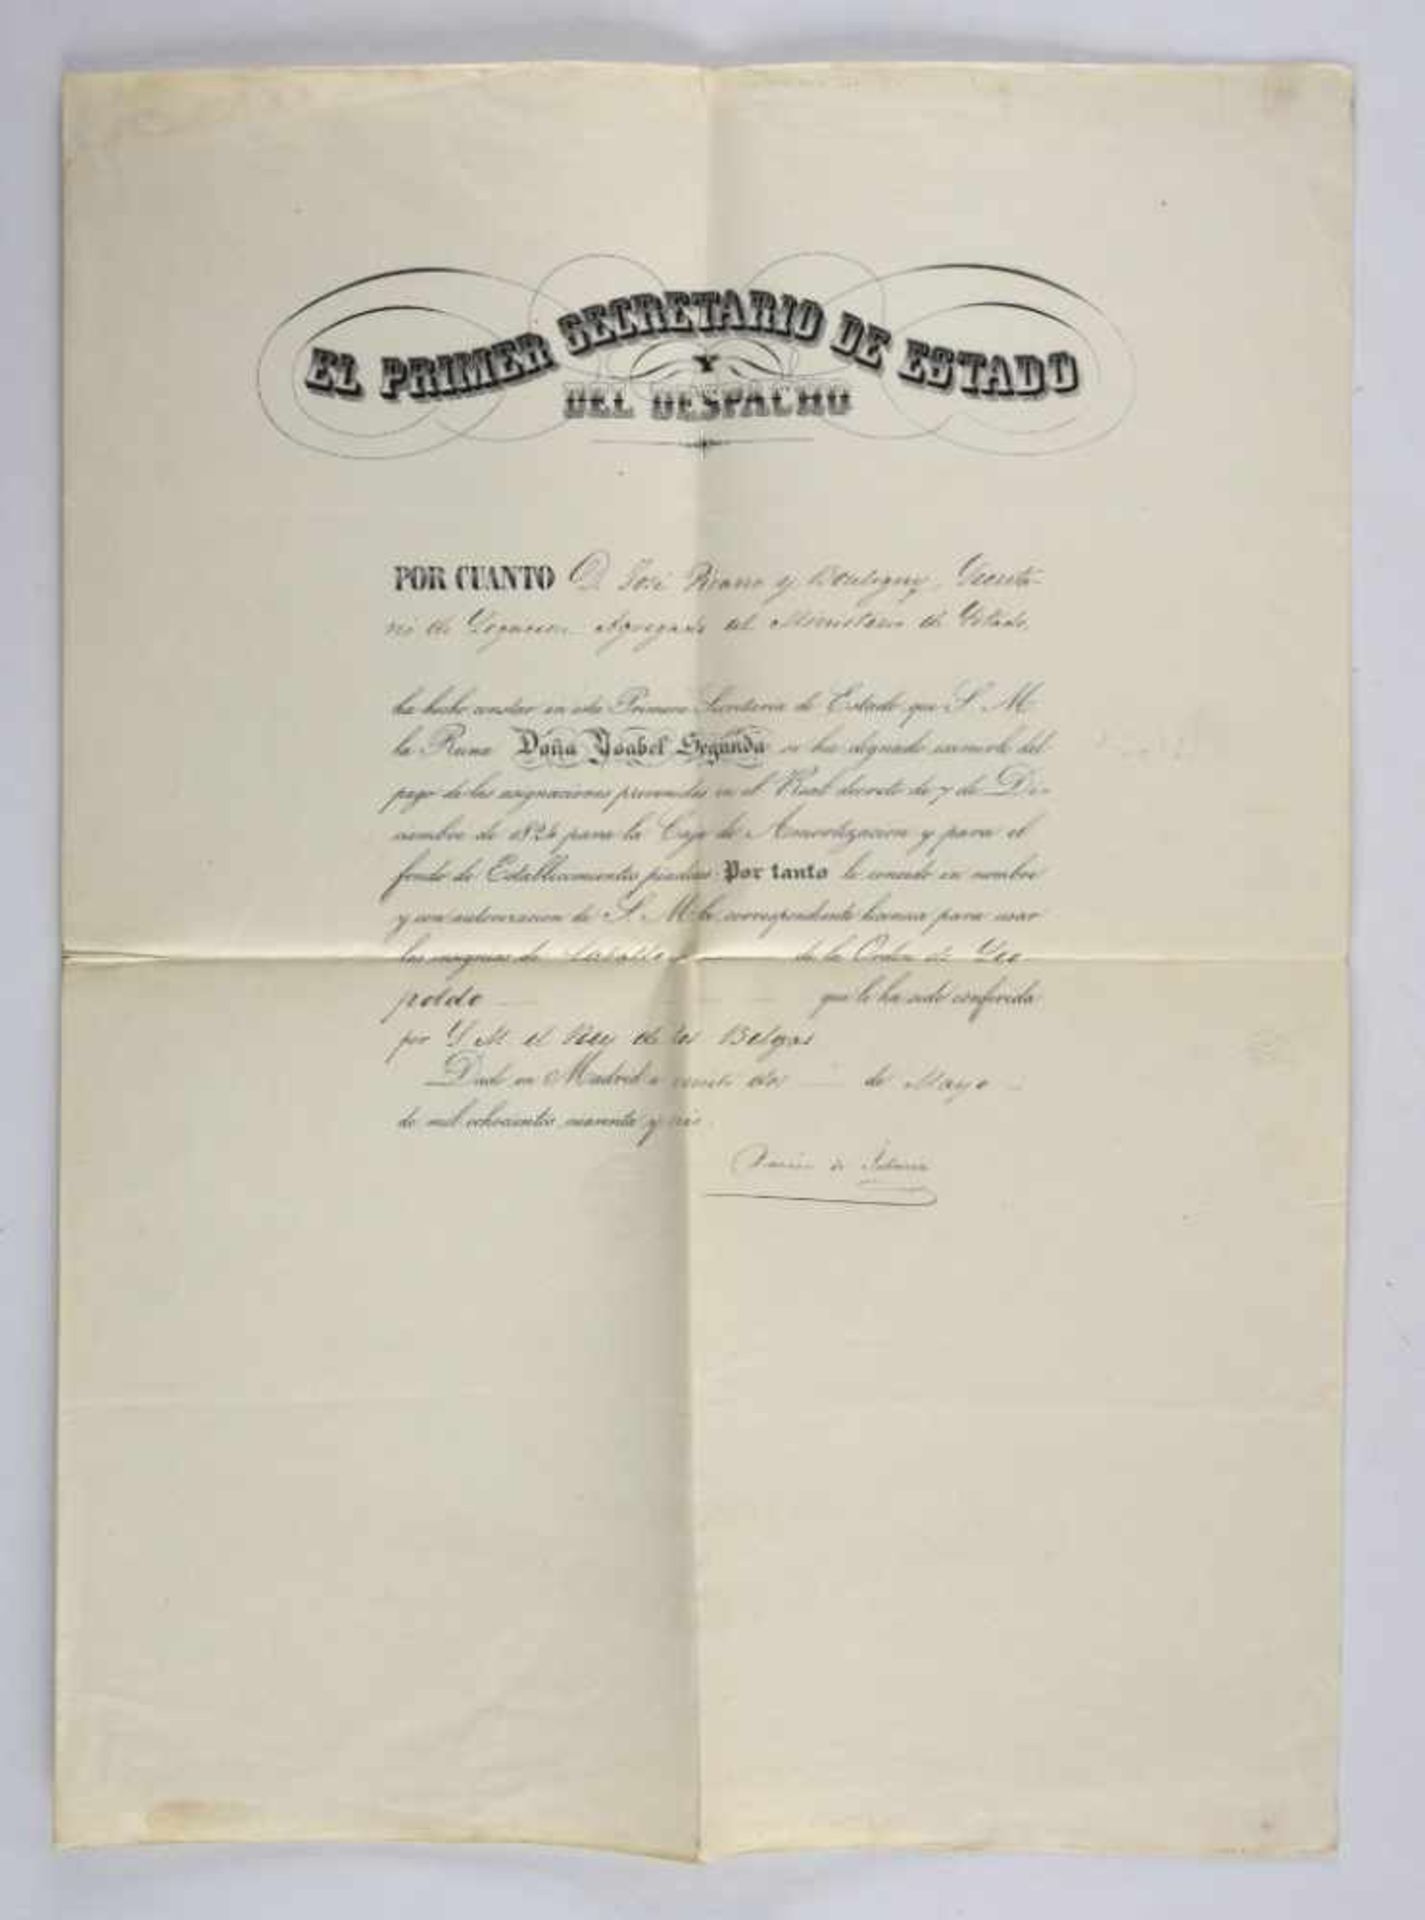 EL PRIMER SECRETARIO DE ESTADO
Y
DEL DESPACHO
POR CUANTO D. José y Bouligny, Secreta-
rio de Legacion Agregado al Ministerio de Estado,
ha hecho constar en esta Primera Secretaria de Estado que S. M.
la Reina Doña Ysabel Segunda se ha dignado eximirle del
pago de las asignaciones prevenidas en el Real decreto de 7 de Di-
ciembre de 1824 para la Caja de Amortizacion y para el
fondo de Establecimientos piadosos Por tanto le concedo en nombre
y con autorizacion de S. M. la correspondiente licencia para usar
las insignias de Caballero de la Orden de Leo
poldo que le ha sido conferida
por S. M. el Rey de los Belgas
Dado en Madrid a veinte dos de Mayo
de mil ochocientos cuarenta y seis.
de